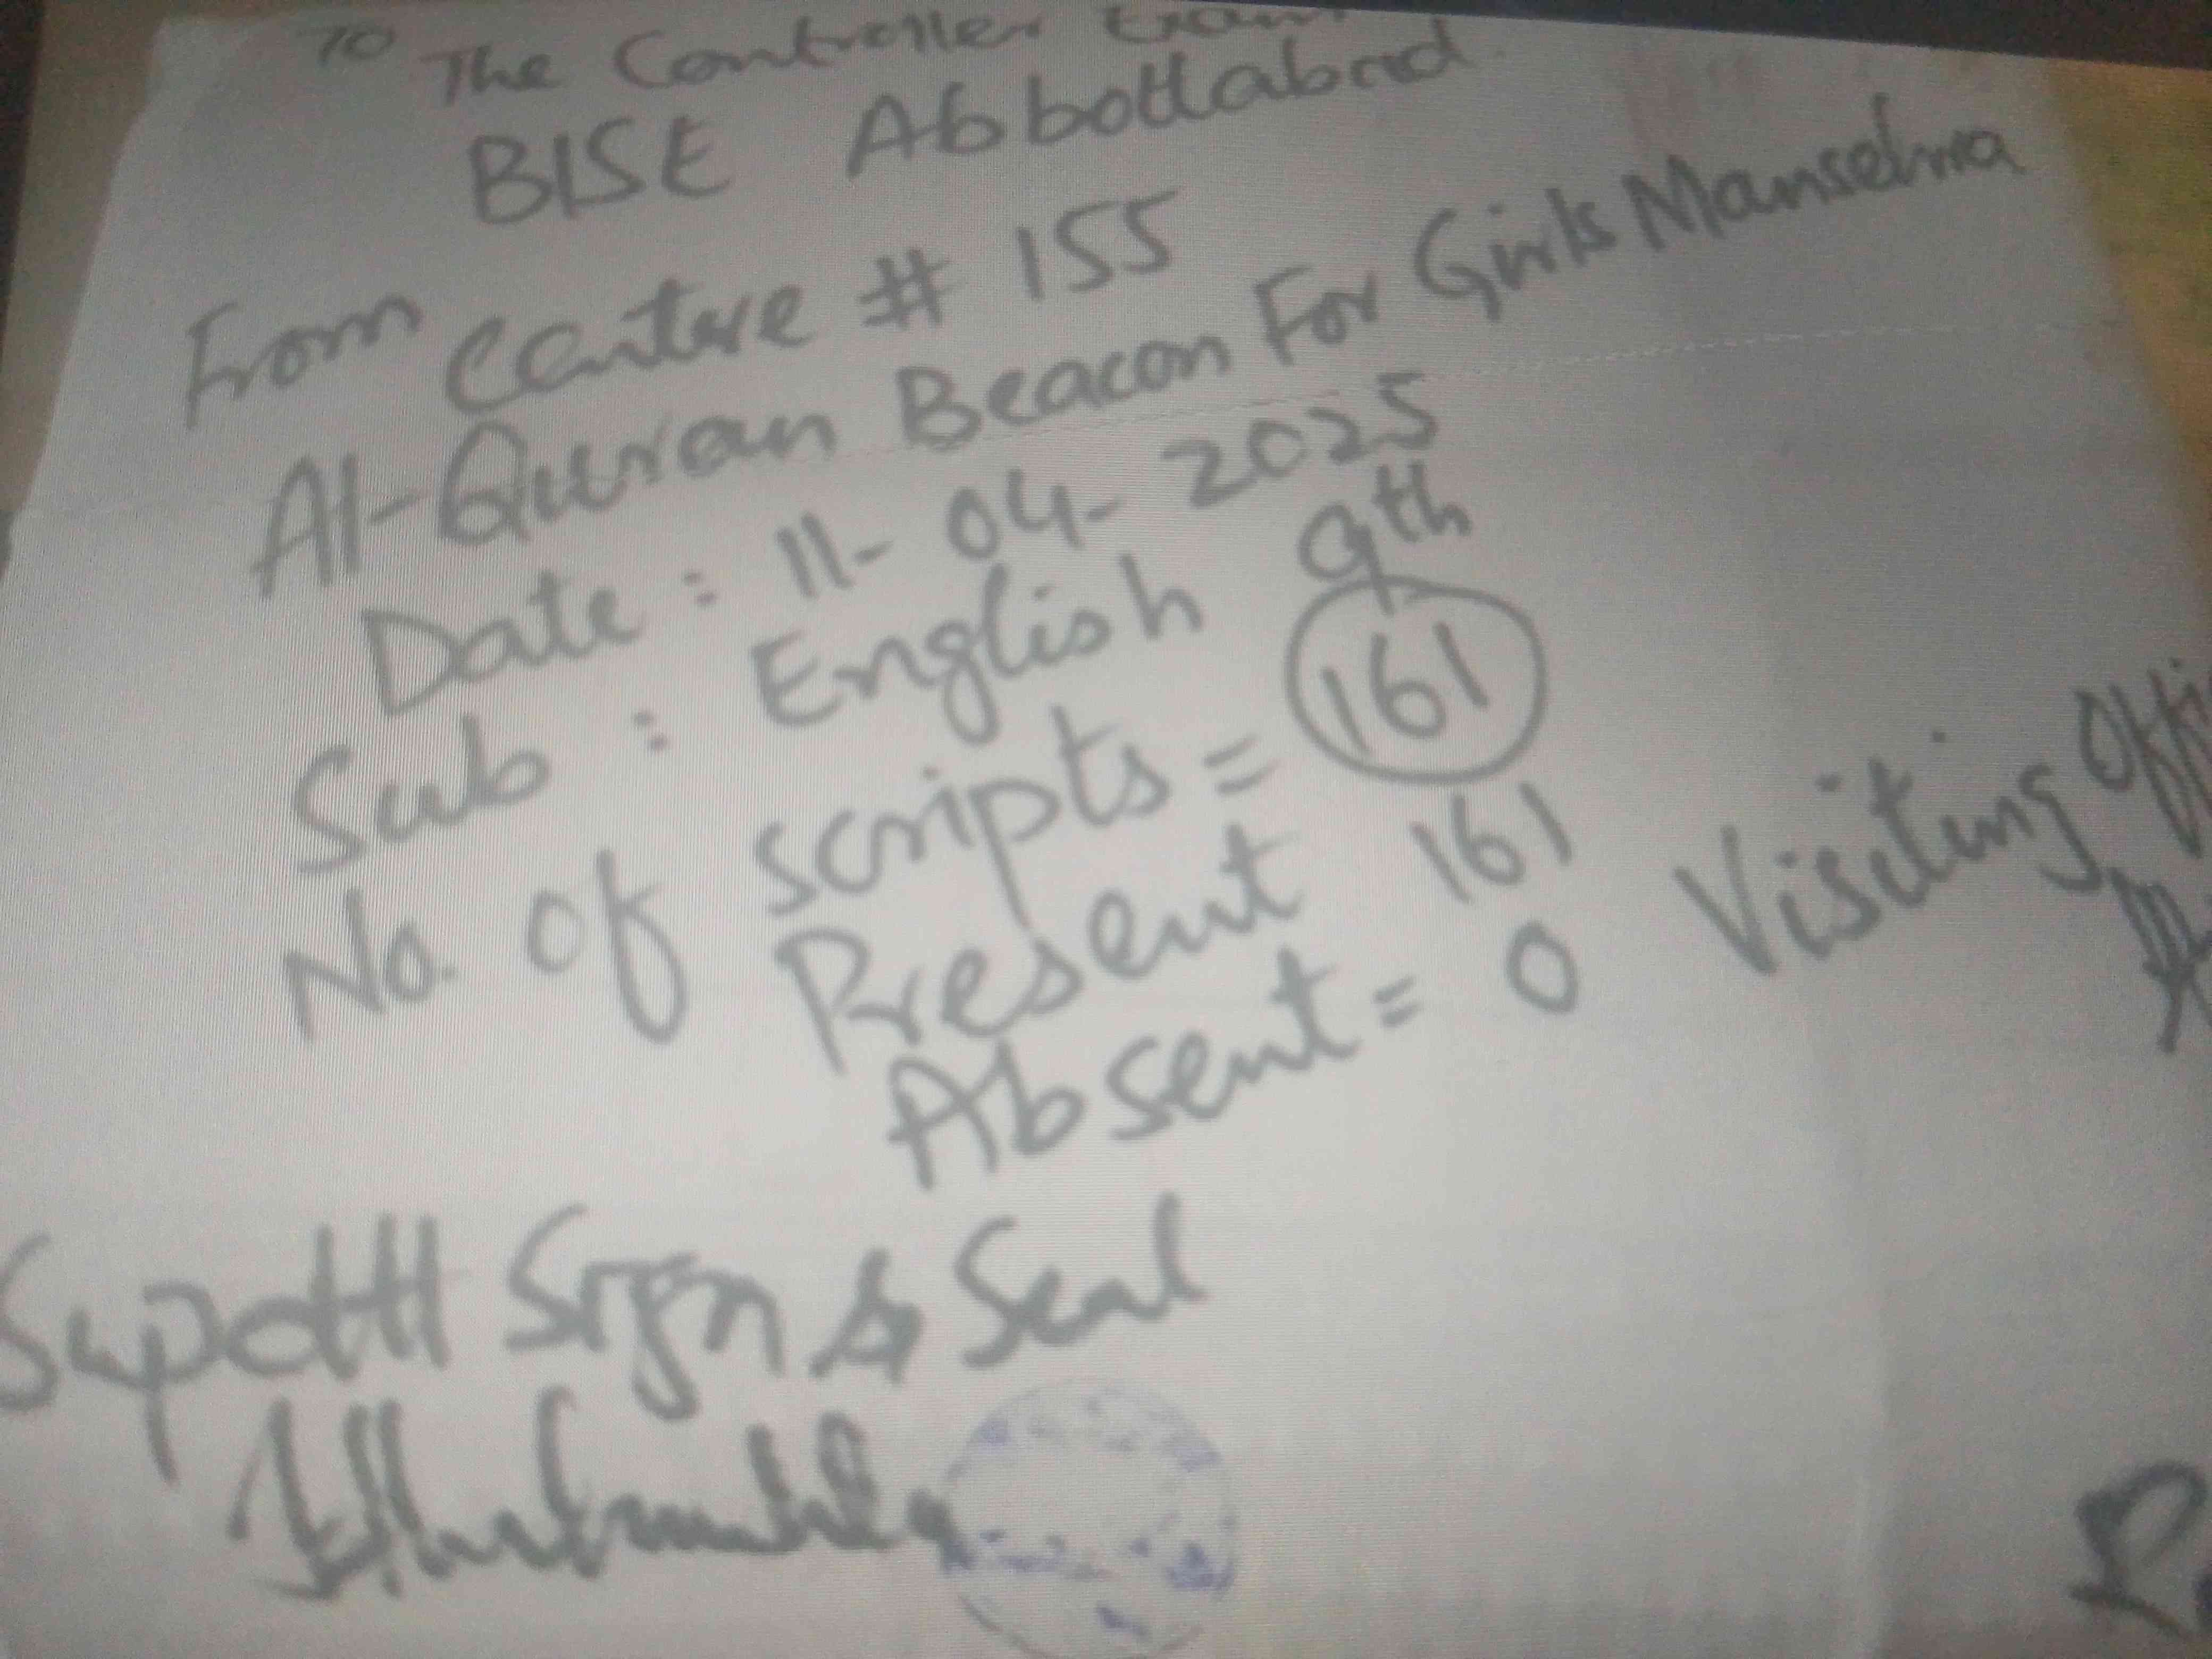 To
The Controller Exam
BISE Abbottabad.
From
Centure # 155
Al-Quran Beacon For Girls Mansehra
Date : 11-04-2025
Sub : English 9th
No. of scripts = 161
Present 161
Absent = 0
Visiting Offi
Supdtt Sign & Seal